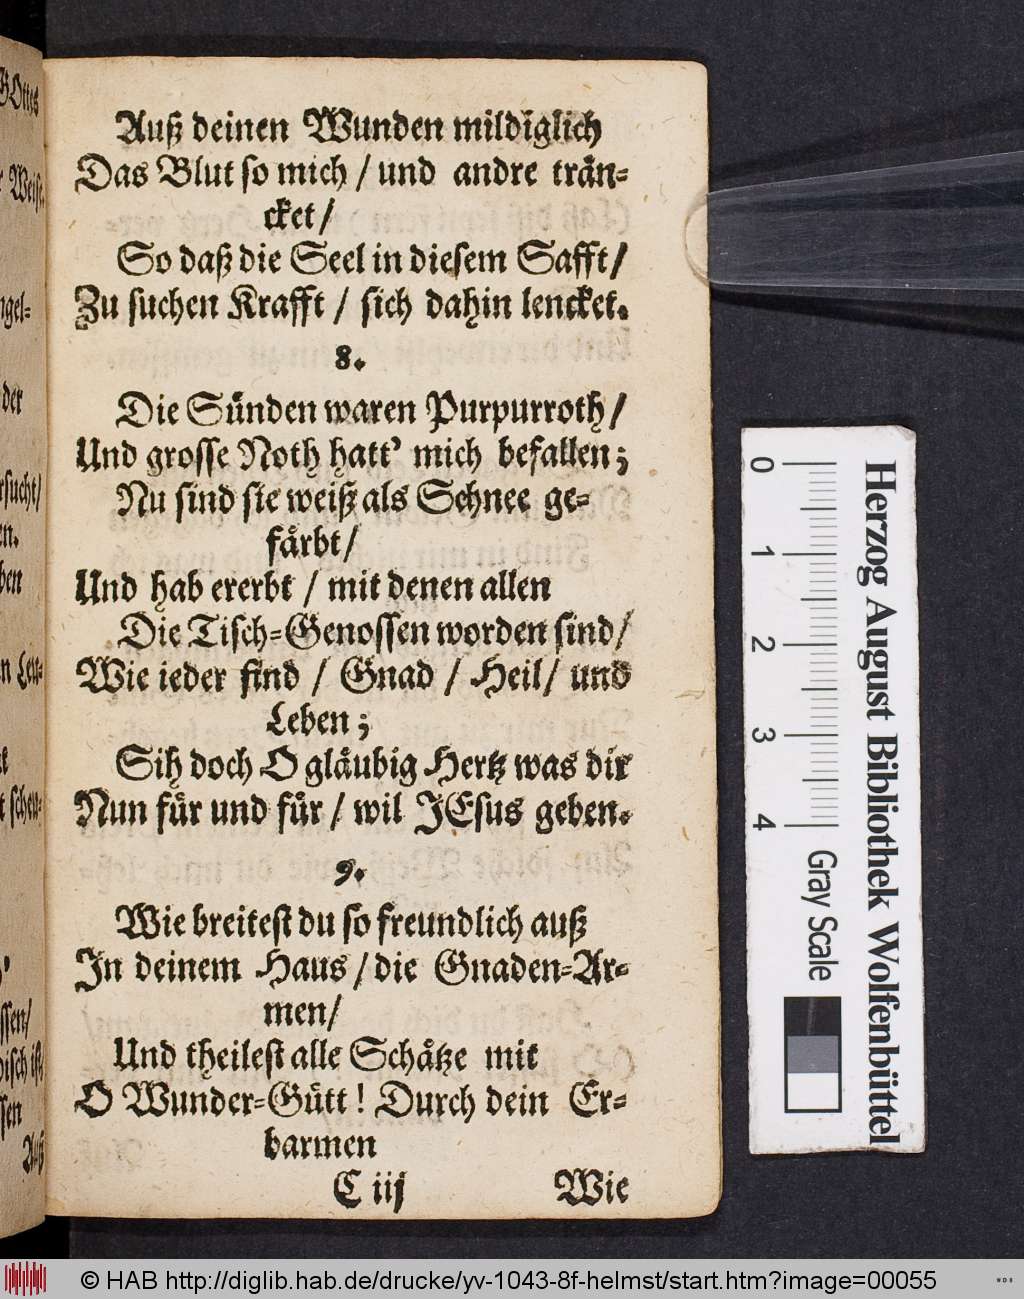 Auß deinen Wunden mildiglich
Das Blut so mich / und andre trän-
cket /
So daß die Seel in diesem Safft /
Zu suchen Krafft / sich dahin lencket.
8.
Die Sünden waren Purpurroth /
Und grosse Noth hatt' mich befallen;
Nu sind sie weiß als Schnee ge-
färbt /
Und hab ererbt / mit denen allen
Die Tisch-Genossen worden sind /
Wie ieder find / Gnad / Heil / und
Leben;
Sih doch O gläubig Hertz was dir
Nun für und für / wil JEsus geben.
9.
Wie breitest du so freundlich auß
In deinem Haus / die Gnaden-Ar-
men /
Und theilest alle Schätze mit
O Wunder-Gütt! Durch dein Er-
barmen
C iij Wie
GOttes
Weise
ngel-
der
rsucht /
en.
ben
n Leu-
t scheu-
ssen /
disch ist /
ssen
Auß
0 1 2 3 4
Gray Scale
Herzog August Bibliothek Wolfenbüttel
© HAB http://diglib.hab.de/drucke/yv-1043-8f-helmst/start.htm?image=00055